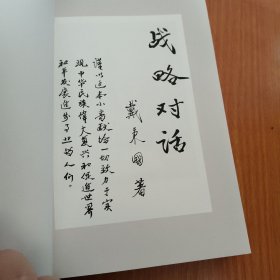 战略对话
戴秉国著
谨以这本小书献给一切致力于实
现中华民族伟大复兴和促进世界
和平发展进步事业的人们。